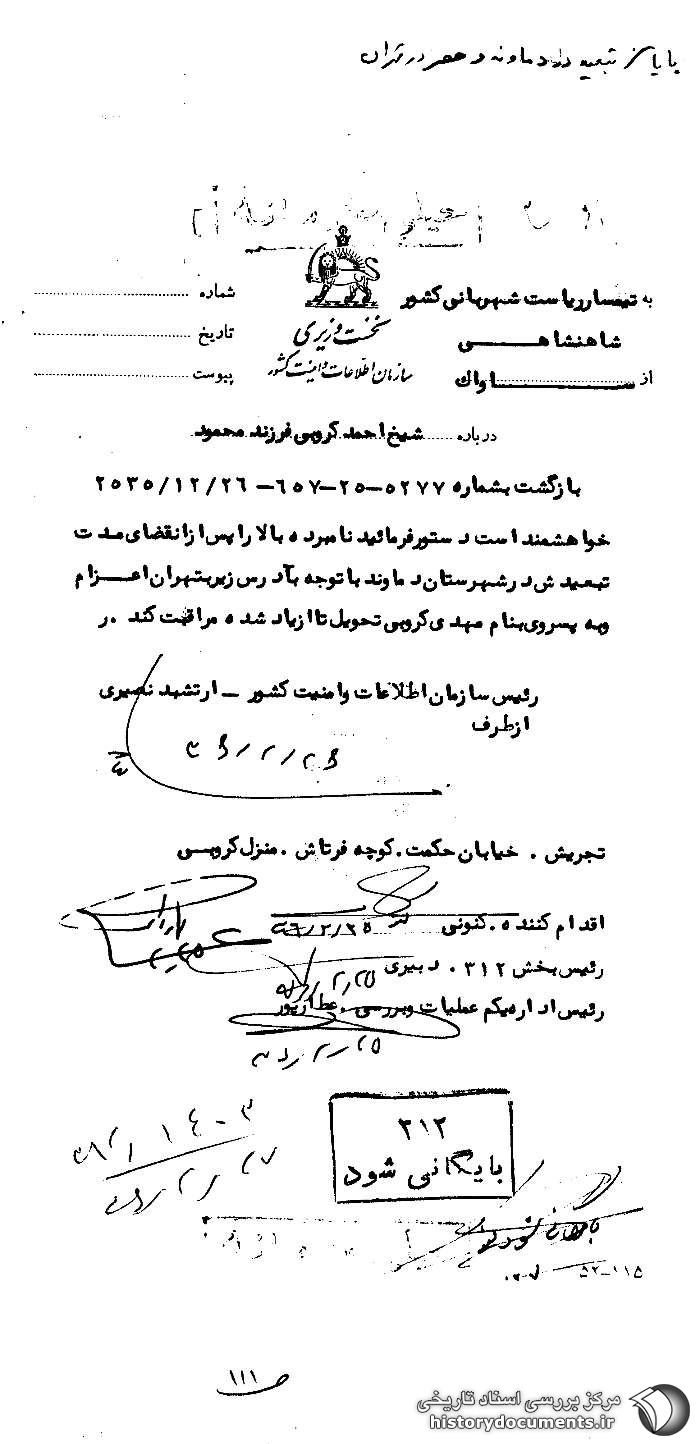 با پایان تبعید در دماوند و حصر در تهران
به تیمسار ریاست شهربانی کشور
شاهنشاهی
از ساواک
نخست وزیری
سازمان اطلاعات و امنیت کشور
شماره
تاریخ
پیوست
درباره شیخ احمد کروبی فرزند محمود
بازگشت بشماره ۵۲۷۷-۲۵-۶۵۷- ۲۵۳۵/۱۲/۲۶
خواهشمند است دستور فرمائید نامبرده بالا را پس از انقضای مدت
تبعیدش در شهرستان دماوند با توجه بآدرس زیر بتهران اعزام
وبه پسروی بنام مهدی کروبی تحویل تا از یاد شده مراقبت کند .ر
رئیس سازمان اطلاعات و امنیت کشور - ارتشبد نصیری
از طرف
تجریش . خیابان حکمت . کوچه فرتاش . منزل کروبی
اقدام کننده . کنونی
رئیس بخش ۳۱۲ . دبیری
رئیس اداره یکم عملیات و بررسی . عطارپور
۳۱۲
بایگانی شود
۵۲-۱۱۵
ص ۱۱۱
مرکز بررسی اسناد تاریخی
historydocuments.ir